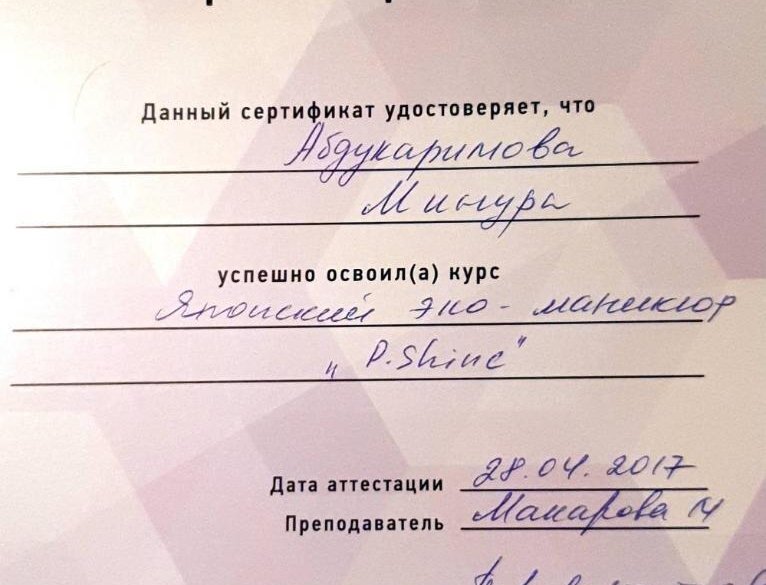 Данный сертификат удостоверяет, что
Абдукаримова
Минура
успешно освоил(а) курс
Японский эко-маникюр
"P.Shine"
Дата аттестации 28.04.2017
Преподаватель Макарова